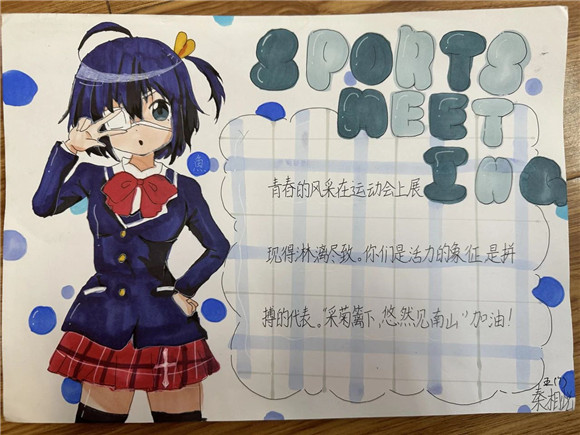 SPORTS
MEET
ING
青春的风采在运动会上展
现得淋漓尽致。你们是活力的象征,是拼
搏的代表。“采菊篱下,悠然见南山”加油!
五(7)